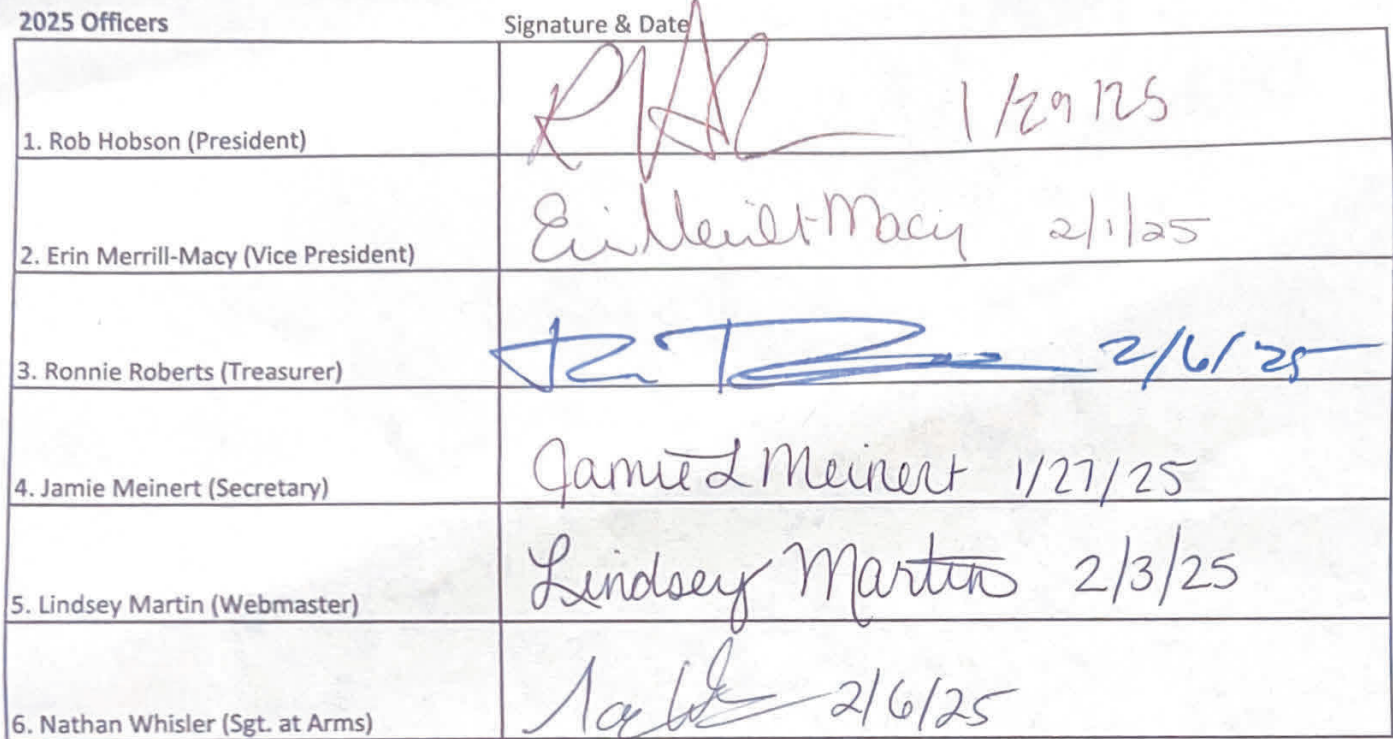 2025 Officers Signature & Date
1. Rob Hobson (President) 1/29/25
2. Erin Merrill-Macy (Vice President) Erin Merrill-Macy 2/1/25
3. Ronnie Roberts (Treasurer) 2/6/25
4. Jamie Meinert (Secretary) Jamie L Meinert 1/27/25
5. Lindsey Martin (Webmaster) Lindsey Martin 2/3/25
6. Nathan Whisler (Sgt. at Arms) 2/6/25